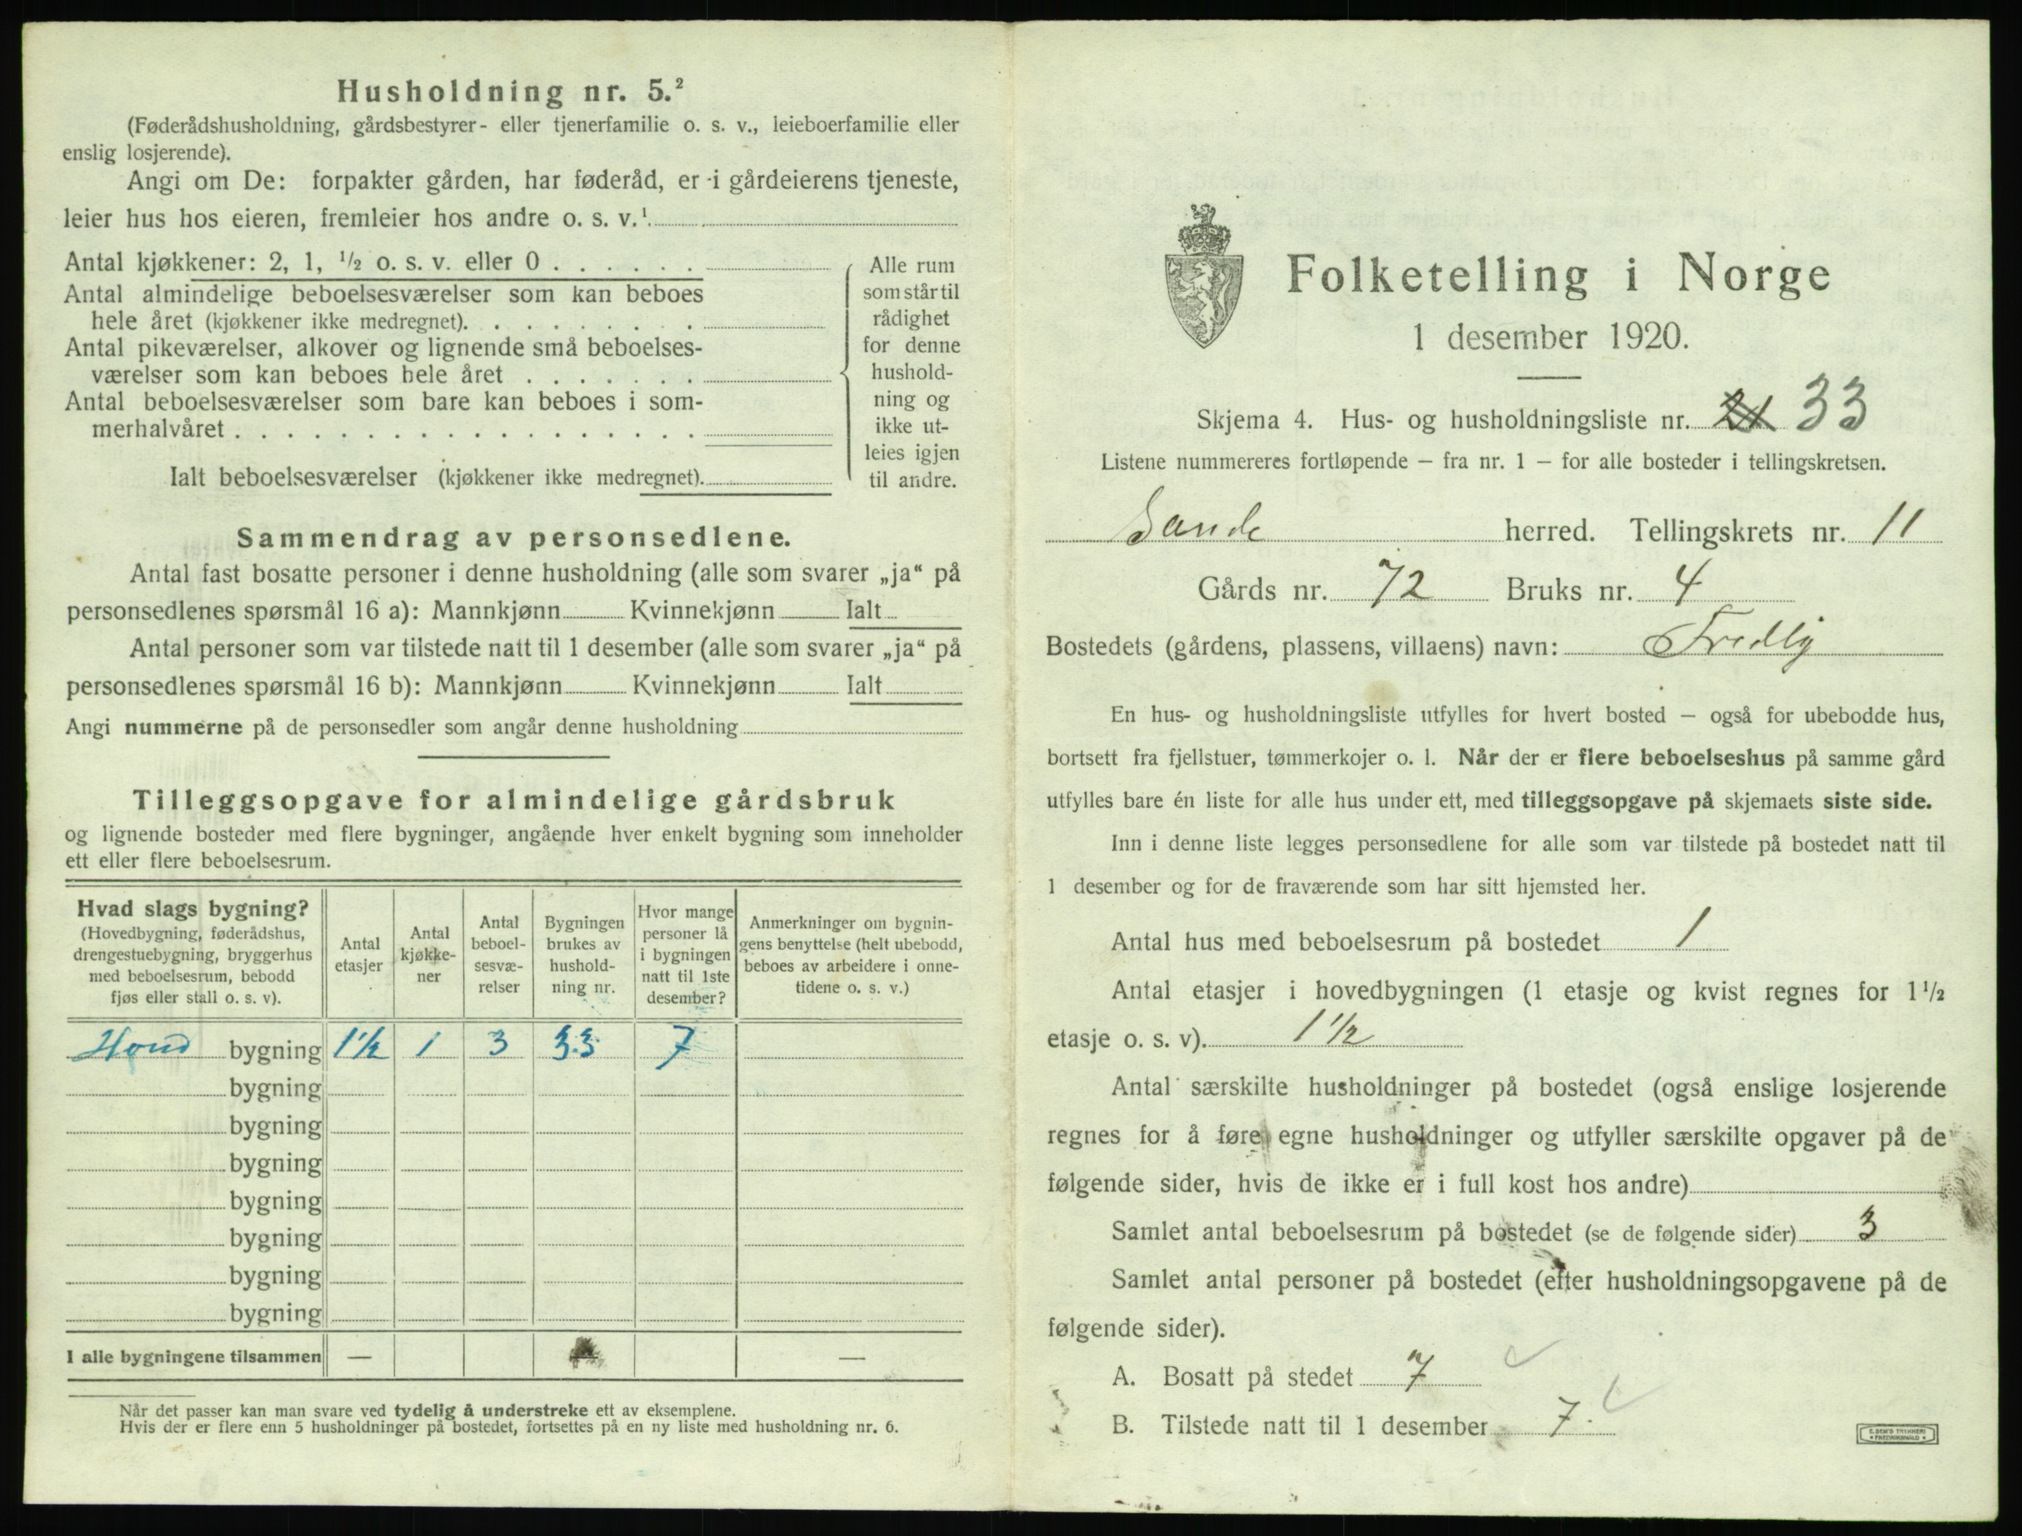 Husholdning nr. 5.²
(Føderådshusholdning, gårdsbestyrer- eller tjenerfamilie o. s. v., leieboerfamilie eller
enslig losjerende).
Angi om De: forpakter gården, har føderåd, er i gårdeierens tjeneste,
leier hus hos eieren, fremleier hos andre o. s. v.¹
Antal kjøkkener: 2, 1, ½ o. s. v. eller 0 . . . . . .
Antal almindelige beboelsesværelser som kan beboes
hele året (kjøkkener ikke medregnet). . . . . . . . .
Antal pikeværelser, alkover og lignende små beboelses-
værelser som kan beboes hele året . . . . . . .
Antal beboelsesværelser som bare kan beboes i som-
merhalvåret . . . . . . . . . . . . . . . . . .
Ialt beboelsesværelser (kjøkkener ikke medregnet).
Alle rum
som står til
rådighet
for denne
hushold-
ning og
ikke ut-
leies igjen
til andre.
Sammendrag av personsedlene.
Antal fast bosatte personer i denne husholdning (alle som svarer „ja“ på
personsedlenes spørsmål 16 a): Mannkjønn Kvinnekjønn Ialt
Antal personer som var tilstede natt til 1 desember (alle som svarer „ja“ på
personsedlenes spørsmål 16 b): Mannkjønn Kvinnekjønn Ialt
Angi nummerne på de personsedler som angår denne husholdning
Tilleggsopgave for almindelige gårdsbruk
og lignende bosteder med flere bygninger, angående hver enkelt bygning som inneholder
ett eller flere beboelsesrum.
Hvad slags bygning?
(Hovedbygning, føderådshus,
drengestuebygning, bryggerhus
med beboelsesrum, bebodd
fjøs eller stall o. s. v).
Antal
etasjer
Antal
kjøkke-
ner
Antal
beboel-
sesvæ-
relser
Bygningen
brukes av
hushold-
ning nr.
Hvor mange
personer lå
i bygningen
natt til 1ste
desember?
Anmerkninger om bygnin-
gens benyttelse (helt ubebodd,
beboes av arbeidere i onne-
tidene o. s. v.)
bygning 1½ 1 3 33 7
bygning
bygning
bygning
bygning
bygning
bygning
bygning
I alle bygningene tilsammen — —
Når det passer kan man svare ved tydelig å understreke ett av eksemplene.
Hvis der er flere enn 5 husholdninger på bostedet, fortsettes på en ny liste med husholdning nr. 6.
Folketelling i Norge
1 desember 1920.
Skjema 4. Hus- og husholdningsliste nr. 21 33
Listene nummereres fortløpende — fra nr. 1 — for alle bosteder i tellingskretsen.
Sande herred. Tellingskrets nr. 11
Gårds nr. 72 Bruks nr. 4
Bostedets (gårdens, plassens, villaens) navn: Fredly
En hus- og husholdningsliste utfylles for hvert bosted — også for ubebodde hus,
bortsett fra fjellstuer, tømmerkojer o. l. Når der er flere beboelseshus på samme gård
utfylles bare én liste for alle hus under ett, med tilleggsopgave på skjemaets siste side.
Inn i denne liste legges personsedlene for alle som var tilstede på bostedet natt til
1 desember og for de fraværende som har sitt hjemsted her.
Antal hus med beboelsesrum på bostedet 1
Antal etasjer i hovedbygningen (1 etasje og kvist regnes for 1½
etasje o. s. v). 1½
Antal særskilte husholdninger på bostedet (også enslige losjerende
regnes for å føre egne husholdninger og utfyller særskilte opgaver på de
følgende sider, hvis de ikke er i full kost hos andre)
Samlet antal beboelsesrum på bostedet (se de følgende sider) 3
Samlet antal personer på bostedet (efter husholdningsopgavene på de
følgende sider).
A. Bosatt på stedet 7
B. Tilstede natt til 1 desember 7.